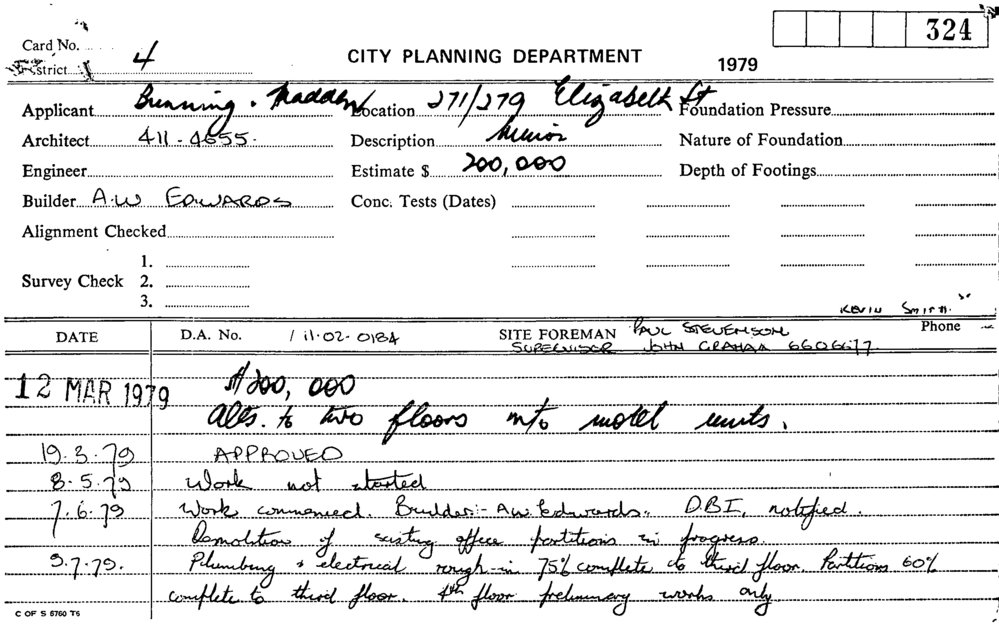 324
Card No. 4
CITY PLANNING DEPARTMENT 1979
District
Applicant Bunning & Madden Location 271/279 Elizabeth St Foundation Pressure
Architect 411-4655. Description Nature of Foundation
Engineer Estimate $ 200,000 Depth of Footings
Builder A.W EDWARDS Conc. Tests (Dates)
Alignment Checked
1.
Survey Check 2.
3.
KEVIN SMITH
DATE D.A. No. 11-02-0184 SITE FOREMAN PAUL STEVENSON Phone
SUPERVISOR JOHN GRAHAM 6606677
12 MAR 1979 $200,000
Alts. to two floors into motel units.
19.3.79 APPROVED
8.5.79 Work not started
7.6.79 Work commenced. Builder:- A.W Edwards. D.B.I. notified.
Demolition of existing office partitions in progress.
9.7.79. Plumbing & electrical rough-in 75% complete to third floor. Partitions 60%
complete to third floor. 4th floor preliminary works only
C OF S 5760 T6